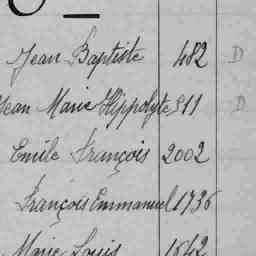 Jean Baptiste 482 D
Jean Marie Hippolyte 511 D
Emile François 2002
François Emmanuel 1736
Marie Louis 1642